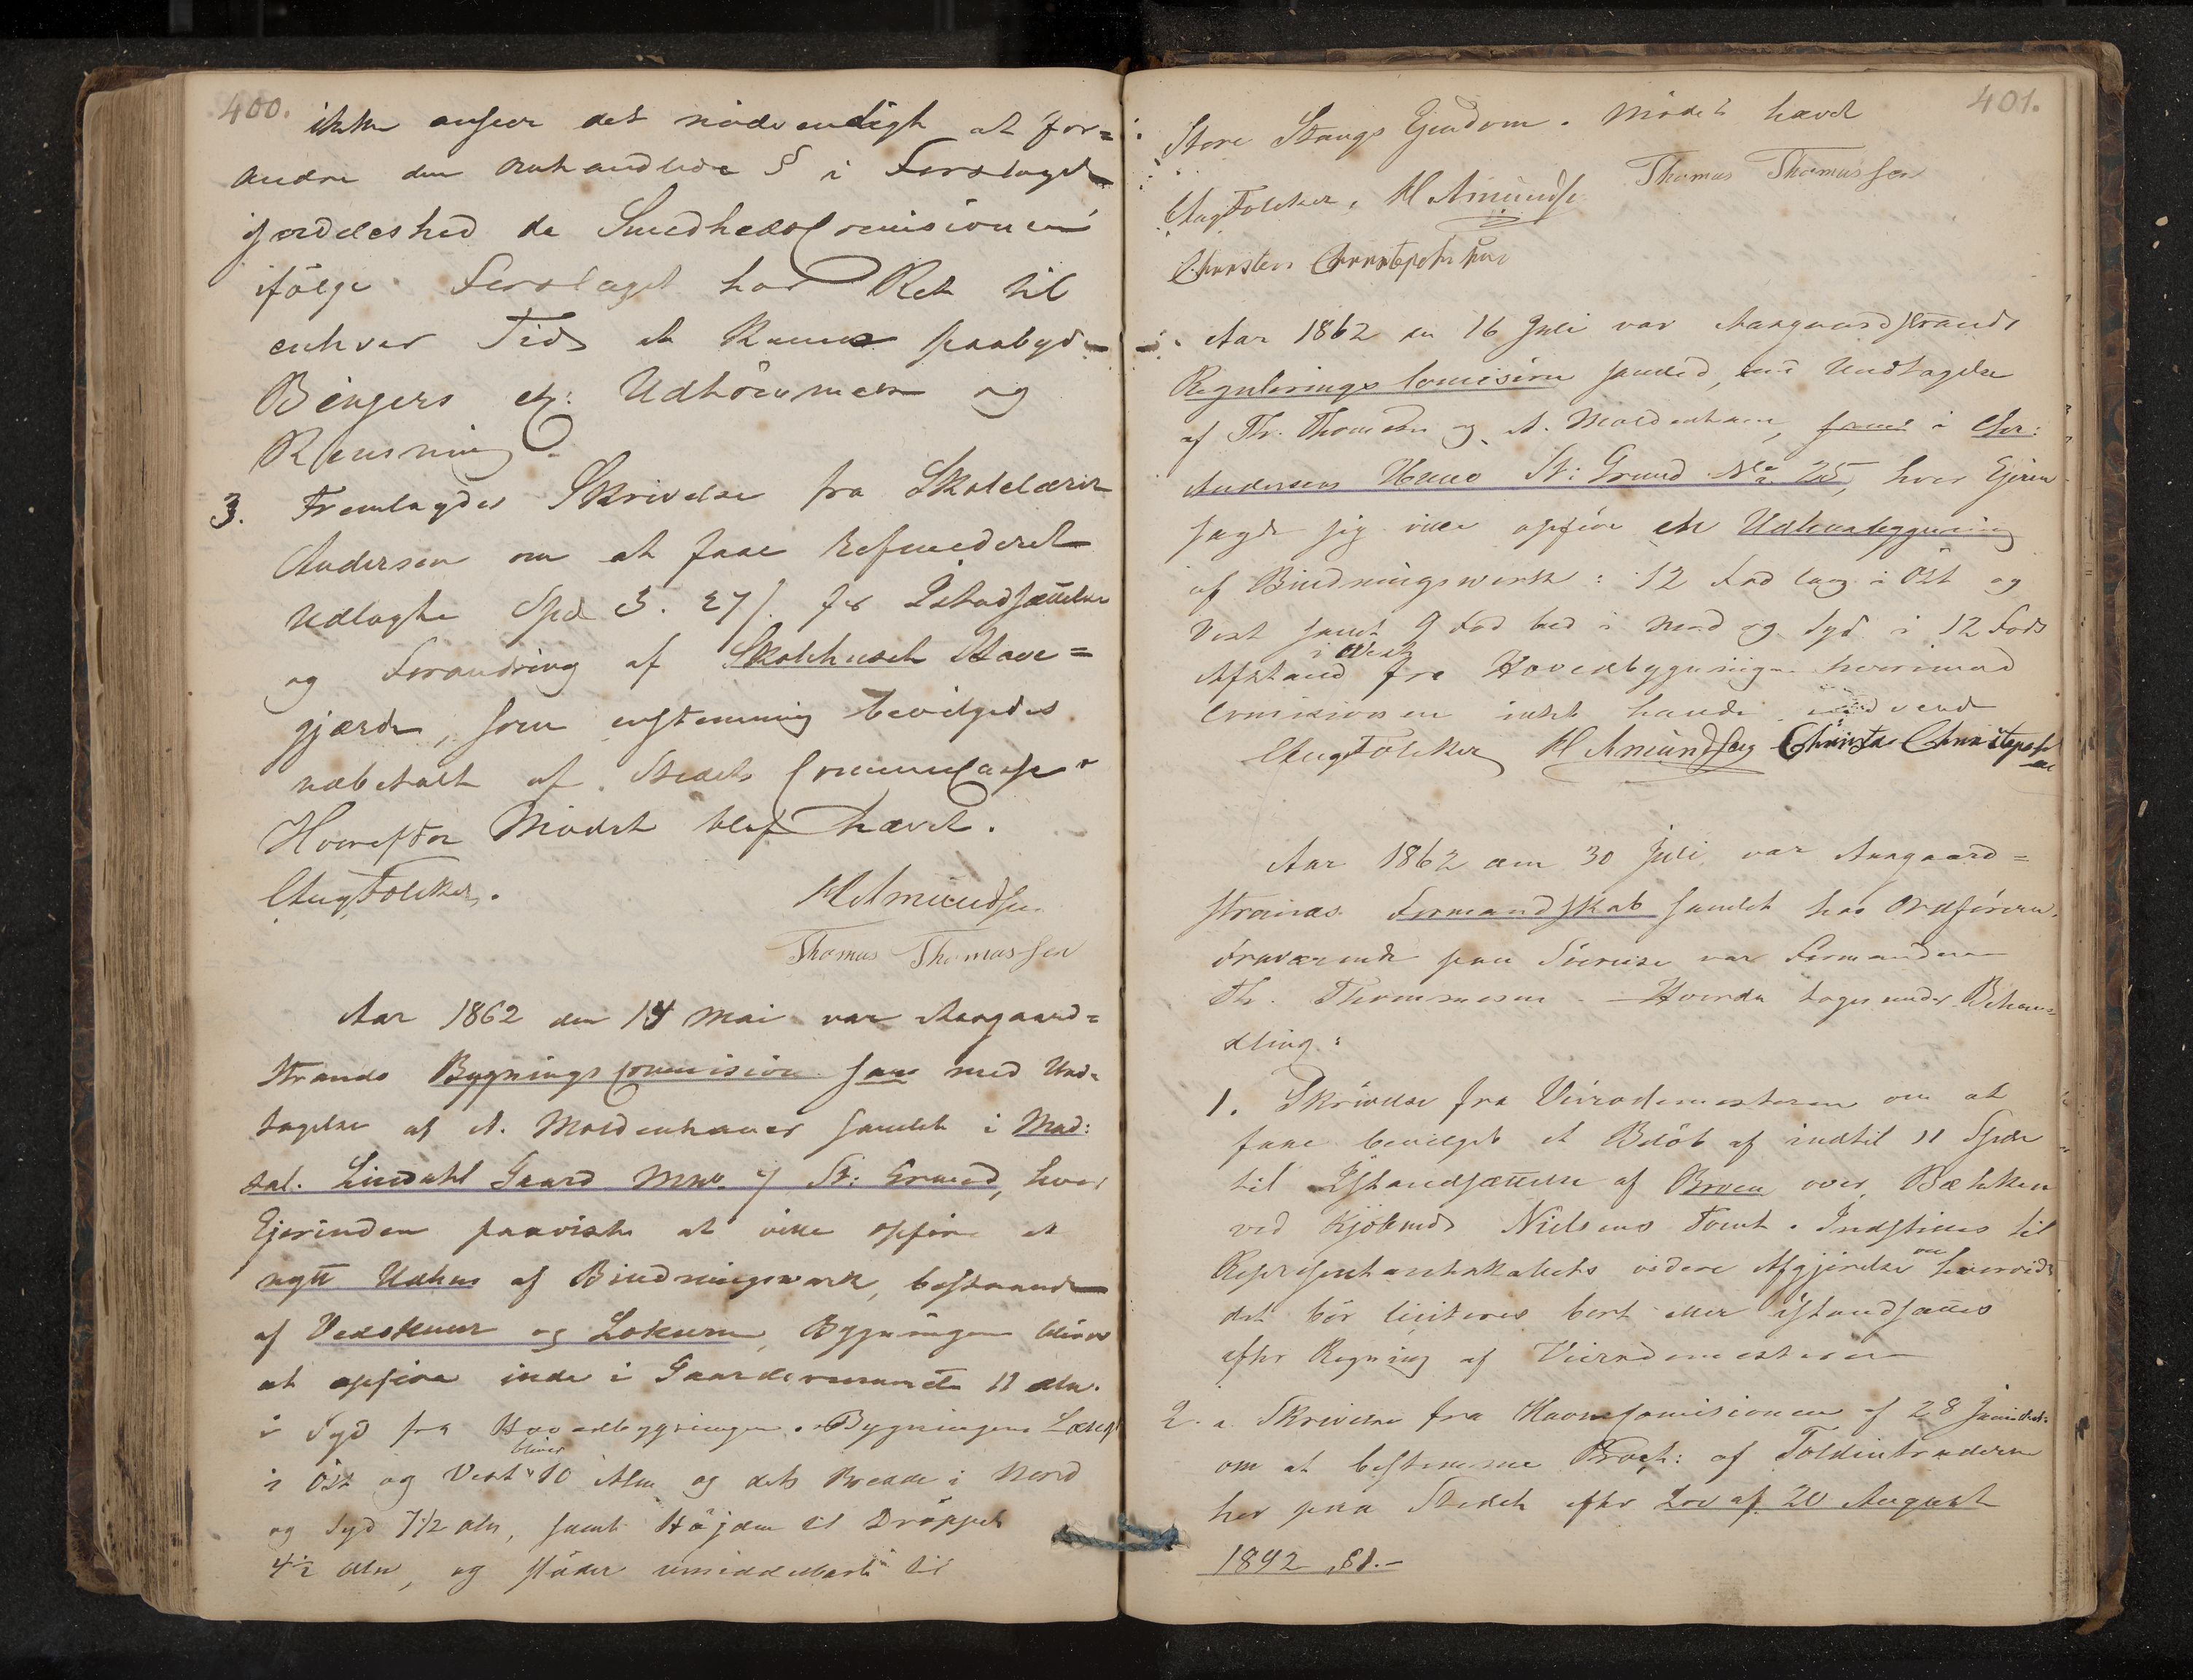 400.
ikke anseer det nödvendigt at for=
andre den omhandlede § i Forslaget
ifordeleshed da Sundhedscomisionen
ifölge Forslaget har Ret til
enhver Tid at kunne paabyde
Bingers etc: Udtömmen og
Rensning.
3. Fremlagdes Skrivelse fra Skolelærer
Andersen om at faae refunderet
udlagte Spd 3. 27 ſ. for Istandsættelse
og Forandring af Skolehusets Have=
gjærde, som enstemmig bevilgedes
udbetalt af Stedets Communecasse
Hvorefter Mödet blef hævet.
Aug Fölcker. H Amundsen
Thomas Thomassen
Aar 1862 den 14 Mai var Aasgaard=
strands Bygningscommision sam med Und=
tagelse af A. Moldenhauer samlet i Mad:
sal. Lindahl Gaard Mno. 7 St: Grund, hvor
Ejerinden paaviste at ville opföre et
nytt Udhus af Bindningsværk, bestaaende
af Vedskuur og Lokum, Bygningen bliver
at opföre inde i Gaardsrummet 11 Aln.
i Syd fra Hovedbygningen. Bygningens Længde
bliver
i Öst og Vest 10 Alen og dets Bredde i Nord
og Syd 7 1/2 Aln, samt Höjden til Dröppet
4 1/2 Aln, og stöder umiddelbart til
401.
Store Stangs Ejendom. Mödet hævet
Thomas Thomassen
Aug Fölcker. H Amundse
Christen Christophersen
Aar 1862 den 16 Juli var Aasgaardstrands
Regulerings Comision samled, med Undtagelse
af Th. Thomesen og A. Moldenhauer, i Chr:
Andersens Huus St: Grund No 25, hvor Ejeren
sagde sig ville opföre en Udhuusbygning
af Bindningsværk: 12 Fod lang i Öst og
Vest samt 9 Fod bred i Nord og Syd i 12 Fods
i Vest
Afstand fra Hovedbygningen hvorimod
Comisionen intet havde indvende
Aug Fölcker H Amundsen Christen Christophersen
Aar 1862 den 30 Juli var Aasgaard=
strands Formandskab samlet hos Ordföreren.
Fraværende paa Söereise var Formanden
Th. Thommesen – Hvorda toges under Behan=
dling:
1. Skrivelse fra Veirodemesteren om at
faae bevilget et Belöb af indtil 11 Spdr
til Istandsættelse af Broen over Bækken
ved Kjöbmd Nielsens Tomt. Indstilles til
Representantskabets videre Afgjörelse om hvorvidt
det bör liciteres bort eller istandsættes
efter Regning af Veirodemesteren
2. a. Skrivelse fra Havnecomisionen af 28 Juni
om at bestemme Proct: af Toldintraderne
her paa Stedet efter Lov af 20 August
1842 §1.–